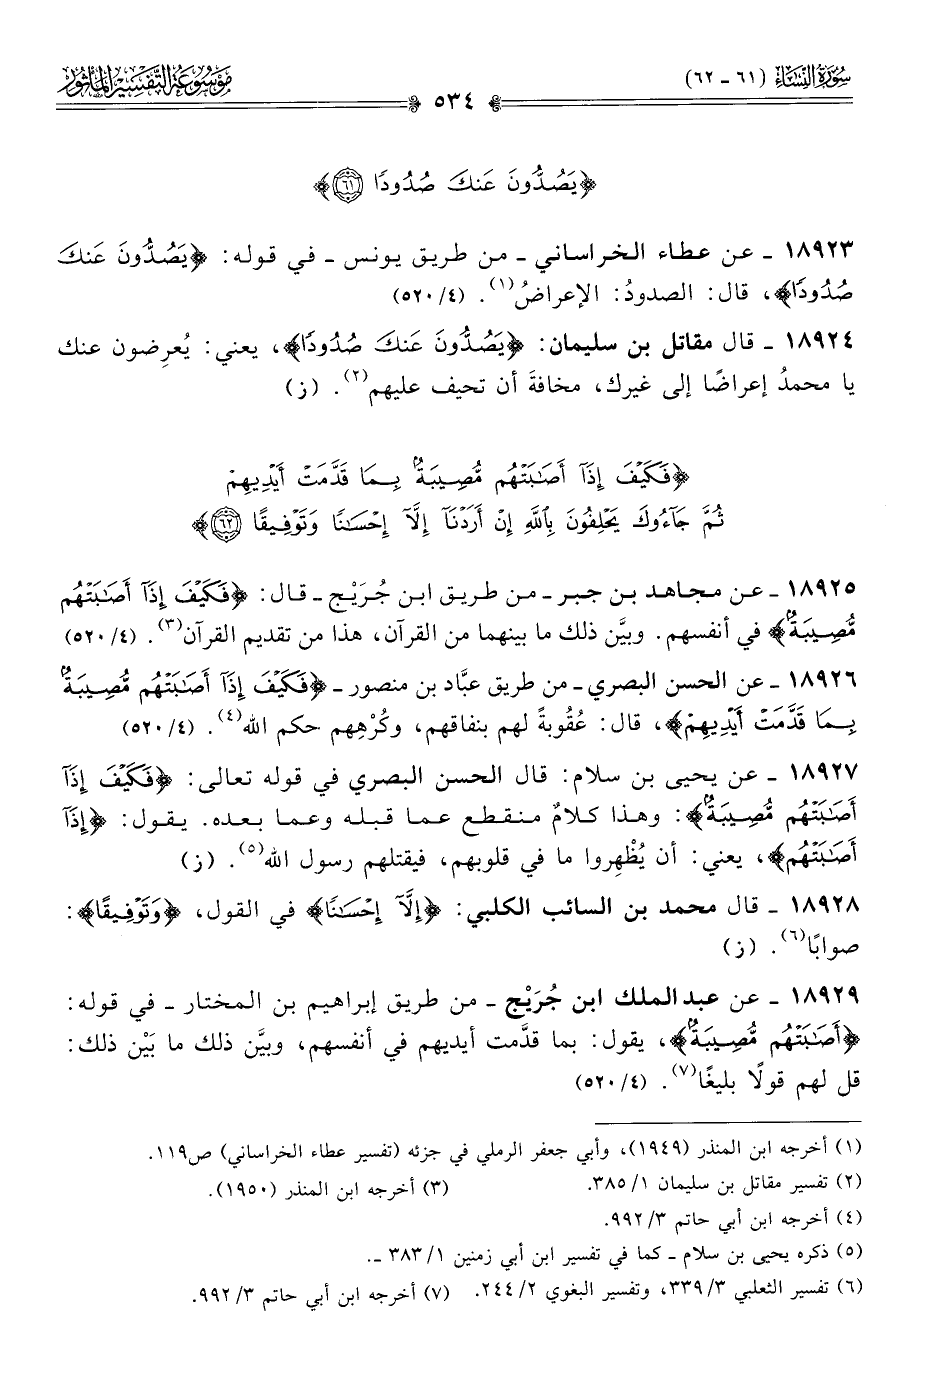 سُورَةُ النِّسَاءِ (٦١ - ٦٢)
موسوعة التفسير المأثور
٥٣٤
﴿يَصُدُّونَ عَنكَ صُدُودًا ٦١﴾
١٨٩٢٣ - عن عطاء الخراساني - من طريق يونس - في قوله: ﴿يَصُدُّونَ عَنكَ
صُدُودًا﴾، قال: الصدودُ: الإعراضُ(١). (٥٢٠/٤)
١٨٩٢٤ - قال مقاتل بن سليمان: ﴿يَصُدُّونَ عَنكَ صُدُودًا﴾، يعني: يُعرِضون عنك
يا محمدُ إعراضًا إلى غيرك، مخافةَ أن تحيف عليهم(٢). (ز)
﴿فَكَيْفَ إِذَآ أَصَٰبَتْهُم مُّصِيبَةٌۢ بِمَا قَدَّمَتْ أَيْدِيهِمْ
ثُمَّ جَآءُوكَ يَحْلِفُونَ بِٱللَّهِ إِنْ أَرَدْنَآ إِلَّآ إِحْسَٰنًا وَتَوْفِيقًا ٦٢﴾
١٨٩٢٥ - عن مجاهد بن جبر - من طريق ابن جُرَيْج - قال: ﴿فَكَيْفَ إِذَآ أَصَٰبَتْهُم
مُّصِيبَةٌۢ﴾ في أنفسهم. وبيَّن ذلك ما بينهما من القرآن، هذا من تقديم القرآن(٣). (٥٢٠/٤)
١٨٩٢٦ - عن الحسن البصري - من طريق عبَّاد بن منصور - ﴿فَكَيْفَ إِذَآ أَصَٰبَتْهُم مُّصِيبَةٌۢ
بِمَا قَدَّمَتْ أَيْدِيهِمْ﴾، قال: عُقُوبةً لهم بنفاقهم، وكُرْهِهم حكم الله(٤). (٥٢٠/٤)
١٨٩٢٧ - عن يحيى بن سلام: قال الحسن البصري في قوله تعالى: ﴿فَكَيْفَ إِذَآ
أَصَٰبَتْهُم مُّصِيبَةٌۢ﴾: وهذا كلامٌ منقطع عما قبله وعما بعده. يقول: ﴿إِذَآ
أَصَٰبَتْهُم﴾، يعني: أن يُظْهِروا ما في قلوبهم، فيقتلهم رسول الله(٥). (ز)
١٨٩٢٨ - قال محمد بن السائب الكلبي: ﴿إِلَّآ إِحْسَٰنًا﴾ في القول، ﴿وَتَوْفِيقًا﴾:
صوابًا(٦). (ز)
١٨٩٢٩ - عن عبد الملك ابن جُرَيْج - من طريق إبراهيم بن المختار - في قوله:
﴿أَصَٰبَتْهُم مُّصِيبَةٌۢ﴾، يقول: بما قدَّمت أيديهم في أنفسهم، وبيَّن ذلك ما بَيْن ذلك:
قل لهم قولًا بليغًا(٧). (٥٢٠/٤)
(١) أخرجه ابن المنذر (١٩٤٩)، وأبي جعفر الرملي في جزئه (تفسير عطاء الخراساني) ص١١٩.
(٢) تفسير مقاتل بن سليمان ٣٨٥/١. (٣) أخرجه ابن المنذر (١٩٥٠).
(٤) أخرجه ابن أبي حاتم ٩٩٢/٣.
(٥) ذكره يحيى بن سلام - كما في تفسير ابن أبي زمنين ٣٨٣/١ -.
(٦) تفسير الثعلبي ٣٣٩/٣، وتفسير البغوي ٢٤٤/٢. (٧) أخرجه ابن أبي حاتم ٩٩٢/٣.